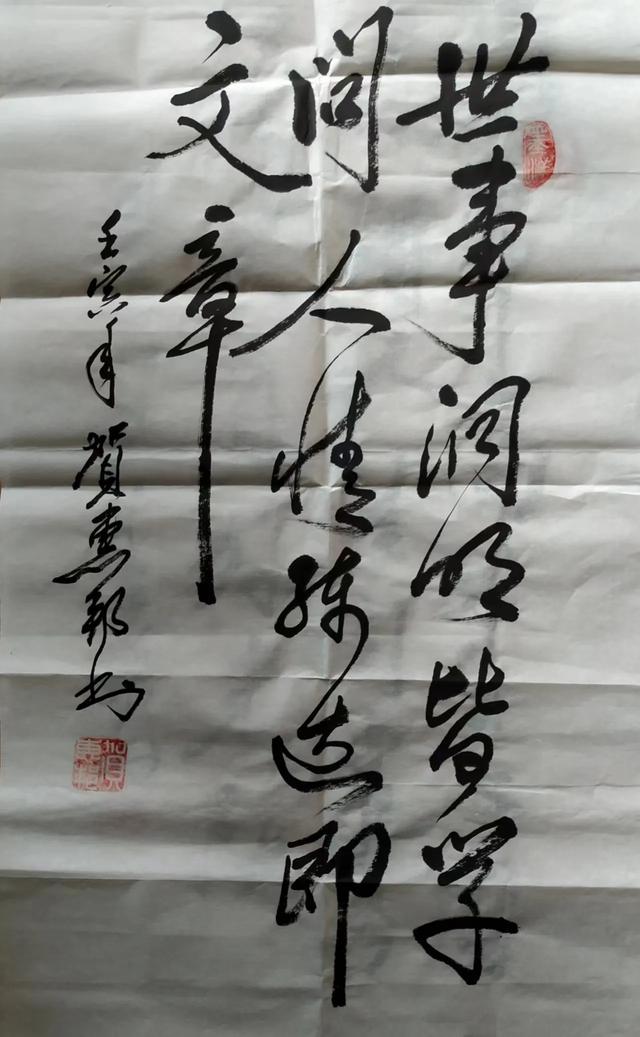 世事洞明皆学
问人情练达即
文章
壬寅年贺惠邦书